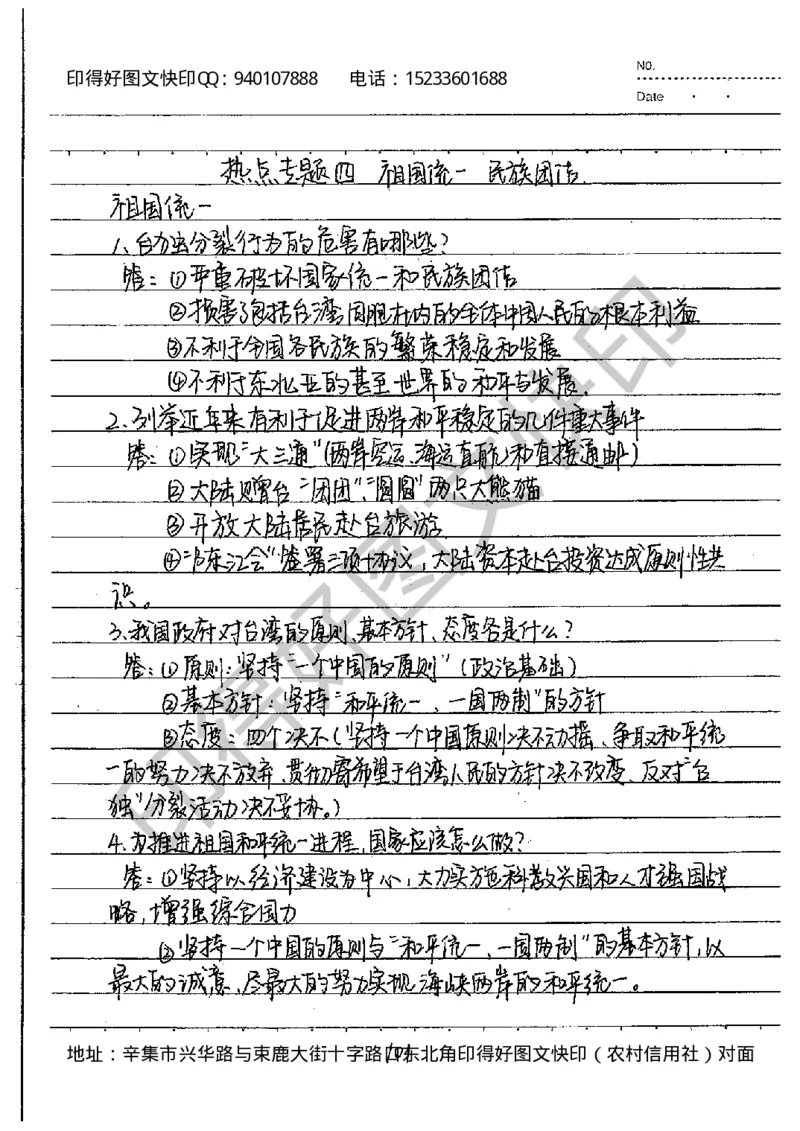 印得好图文快印QQ：940107888 电话：15233601688
No.
Date
热点专题四 祖国统一 民族团结.
祖国统一
1、台办出分裂行为的危害有哪些？
答：①严重破坏国家统一和民族团结
②损害了包括台湾同胞在内的全体中国人民的根本利益
③不利于全国各民族的繁荣稳定和发展
④不利于东北亚的甚至世界的和平与发展.
2、列举近年来有利于促进两岸和平稳定的几件重大事件
答：①实现“大三通”（两岸空运、海运直航）和直接通邮）
②大陆赠台“团团”、“圆圆”两只大熊猫
③开放大陆居民赴台旅游
④“陈江会”签署三项协议，大陆资本赴台投资达成原则性共
识。
3、我国政府对台湾的原则、基本方针、态度各是什么？
答：①原则：坚持“一个中国的原则”（政治基础）
②基本方针：坚持“和平统一、一国两制”的方针
③态度：四个决不（坚持一个中国原则决不动摇、争取和平统
一的努力决不放弃、贯彻寄希望于台湾人民的方针决不改变、反对“台
独”分裂活动决不妥协。）
4、为推进祖国和平统一进程，国家应该怎么做？
答：①坚持以经济建设为中心，大力实施科教兴国和人才强国战
略，增强综合国力
②坚持一个中国的原则与“和平统一、一国两制”的基本方针，以
最大的诚意、尽最大的努力实现海峡两岸的和平统一。
地址：辛集市兴华路与束鹿大街十字路口东北角印得好图文快印（农村信用社）对面
印得好图文快印